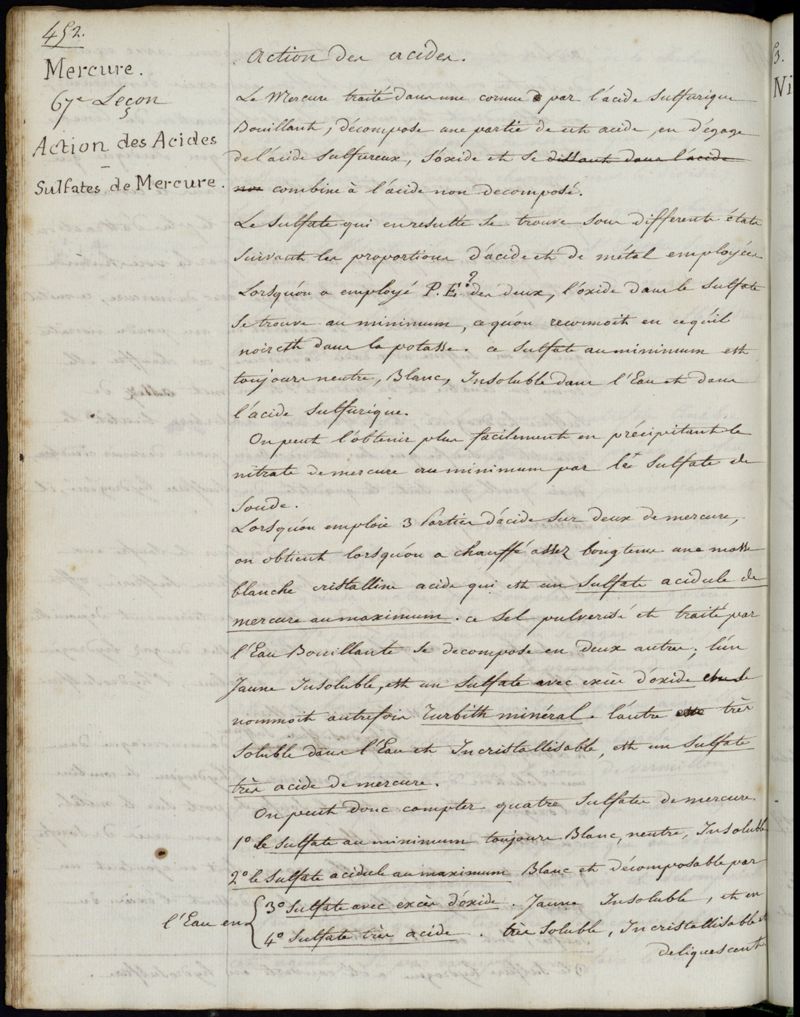 452.
Mercure.
67e Leçon
Action des Acides
Sulfates de Mercure.
Action des acides.
Le Mercure traité dans une cornue par l'acide Sulfurique
Bouillant, décompose une partie de cet acide, en dégage
de l'acide Sulfureux, S'oxide et se dissout dans l'acide
non combine à l'acide non decomposé.
Le Sulfate qui en resulte se trouve sous differents états
Suivant les proportions d'acide et de métal employées
Lorsqu'on a employé P.E.? des deux, l'oxide dans le Sulfate
Se trouve au minimum, ce qu'on reconnoit en ce qu'il
noircit dans la potasse. ce Sulfate au minimum est
toujours neutre, Blanc, Insoluble dans l'Eau et dans
l'acide Sulfurique.
On peut l'obtenir plus facilement en précipitant le
nitrate de mercure au minimum par le Sulfate de
Soude.
Lorsqu'on emploie 3 Parties d'acide Sur deux de mercure,
on obtient lorsqu'on a chauffé assez longtems une masse
blanche cristalline acide qui est un Sulfate acidule de
mercure au maximum. ce Sel pulverisé et traité par
l'Eau Bouillante Se decompose en deux autres; l'un
Jaune Insoluble, est un Sulfate avec excès d'oxide le
nommoit autrefois Turbith minéral. l'autre très
Soluble dans l'Eau et Incristallisable, est un Sulfate
très acide de mercure.
On peut donc compter quatre Sulfates de mercure
1o le Sulfate au minimum toujours Blanc, neutre, Insoluble
2o le Sulfate acidule au maximum Blanc et décomposable par
l'Eau en { 3o Sulfate avec excès d'oxide. Jaune Insoluble, et en
4o Sulfate très acide. très Soluble, Incristallisable et
deliquescent
3.
Ni